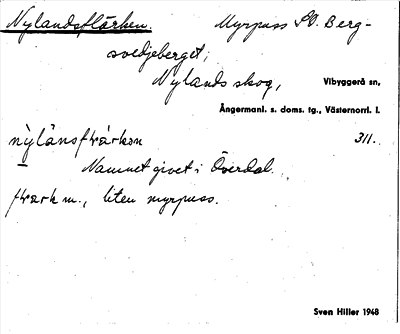 Nylandsflärken. Myrpuss SV. Berg-
svedjeberget;
Nylands skog, Vibyggerå sn,
Ångermanl. s. doms. tg., Västernorrl. l.
311.
Namnet givet i Överdal.
m., liten myrpuss.
Sven Hiller 1948